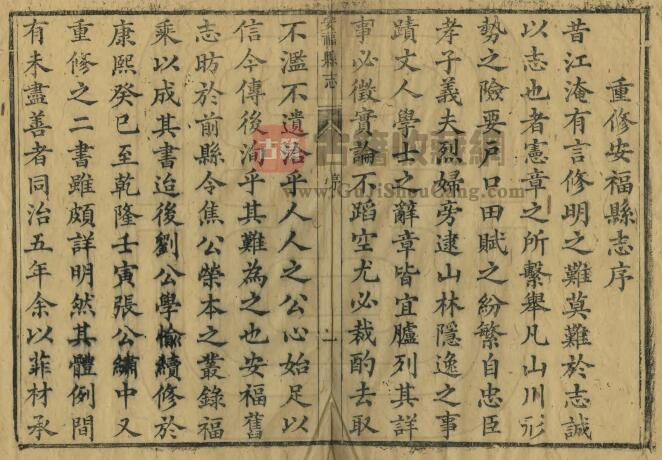 重修安福縣志序
昔江淹有言修明之難莫難於志誠
以志也者憲章之所繫舉凡山川形
勢之險要戶口田賦之紛繁自忠臣
孝子義夫烈婦旁逮山林隱逸之事
蹟文人學士之辭章皆宜臚列其詳
事必徵實論不蹈空尤必裁酌去取
安福縣志
序
一
不濫不遺洽乎人人之公心始足以
信今傳後洵乎其難為之也安福舊
志昉於前縣令焦公榮本之叢錄福
乘以成其書迨後劉公學愉續修於
康熙癸巳至乾隆壬寅張公繡中又
重修之二書雖頗詳明然其體例間
有未盡善者同治五年余以菲材承
古籍
古籍收藏網
www.GuJiShouCang.com